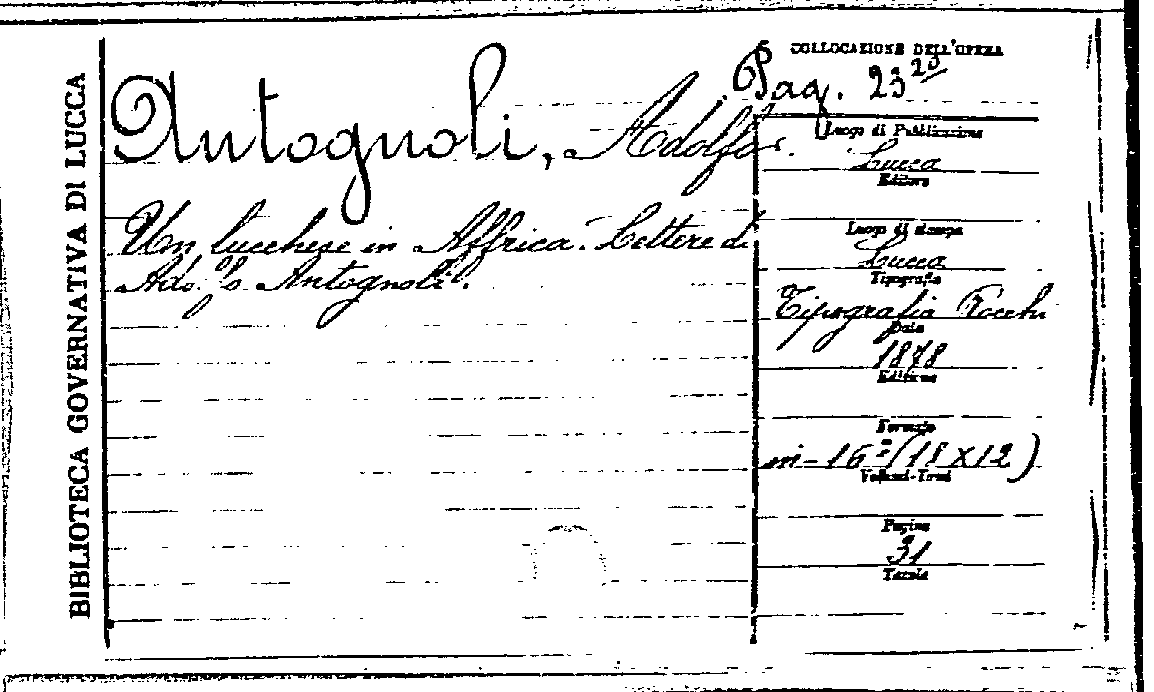 BIBLIOTECA GOVERNATIVA DI LUCCA
Antognoli, Adolfo.
Un lucchese in Affrica. Lettere di
Adolfo Antognoli.
COLLOCAZIONE DELL'OPERA
Pag. 23
Luogo di Pubblicazione
Lucca
Editore
Luogo di stampa
Lucca
Tipografia
Tipografia Rocchi
Data
1878
Edizione
Formato
in-16º (18 X 12)
Volumi-Tomi
Pagine
31
Tavole